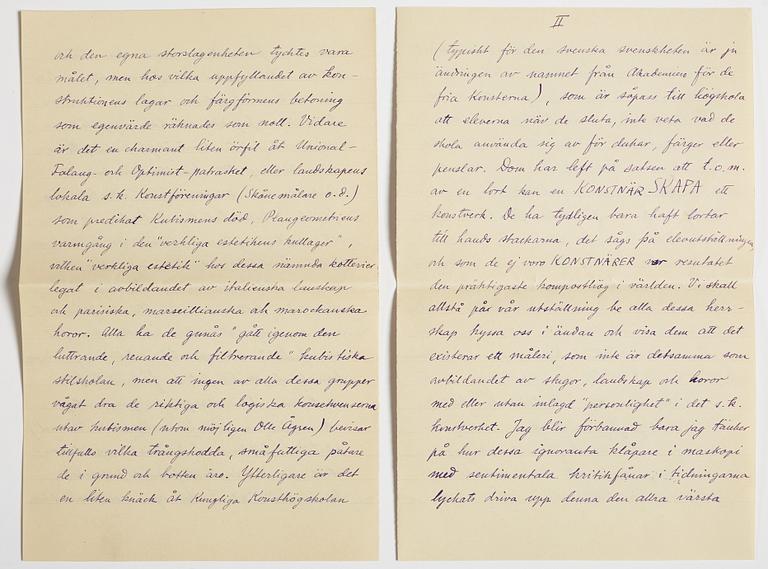 och den egna storslagenheten tycktes vara
målet, men hos vilka uppfyllandet av kon-
struktionens lagar och färgformens betoning
som egenvärde räknades som noll. Vidare
är det en charmant liten örfil åt Unional-
Falang- och Optimist-patrasket, eller landskapens
lokala s.k. Konstföreningar (Skånemålare o.d.)
som predikat Kubismens död, Plangeometriens
varmgång i den "verkliga estetikens kullager",
vilken "verkliga estetik" hos dessa nämnda kotterier
legat i avbildandet av italienska landskap
och parisiska, marseillianska och marockanska
horor. Alla ha de gunås "gått igenom den
luttrande, renande och filtrerande" kubistiska
stilskolan, men att ingen av alla dessa grupper
vågat dra de riktiga och logiska konsekvenserna
utav kubismen (utom möjligen Olle Ågren) bevisar
tillfullo vilka trångskodda, småfuttiga påtare
de i grund och botten äro. Ytterligare är det
en liten knäck åt Kungliga Konsthögskolan
II
(typiskt för den svenska svenskheten är ju
ändringen av namnet från Akademien för de
fria Konsterna), som är såpass till högskola
att eleverna när de sluta, inte veta vad de
skola använda sig av för dukar, färger eller
penslar. Dom har left på satsen att t.o.m.
av en lort kan en KONSTNÄR SKAPA ett
konstverk. De ha tydligen bara haft lortar
till hands stackarna, det sågs på elevutställningen,
och som de ej voro KONSTNÄRER var resultatet
den präktigaste komposthög i världen. Vi skall
alltså på vår utställning be alla dessa herr-
skap kyssa oss i ändan och visa dem att det
existerar ett måleri, som inte är detsamma som
avbildandet av stugor, landskap och horor
med eller utan inlagd "personlighet" i det s.k.
konstverket. Jag blir förbannad bara jag tänker
på hur dessa ignoranta klåpare i maskopi
med sentimentala kritikfånar i tidningarna
lyckats driva upp denna den allra värsta